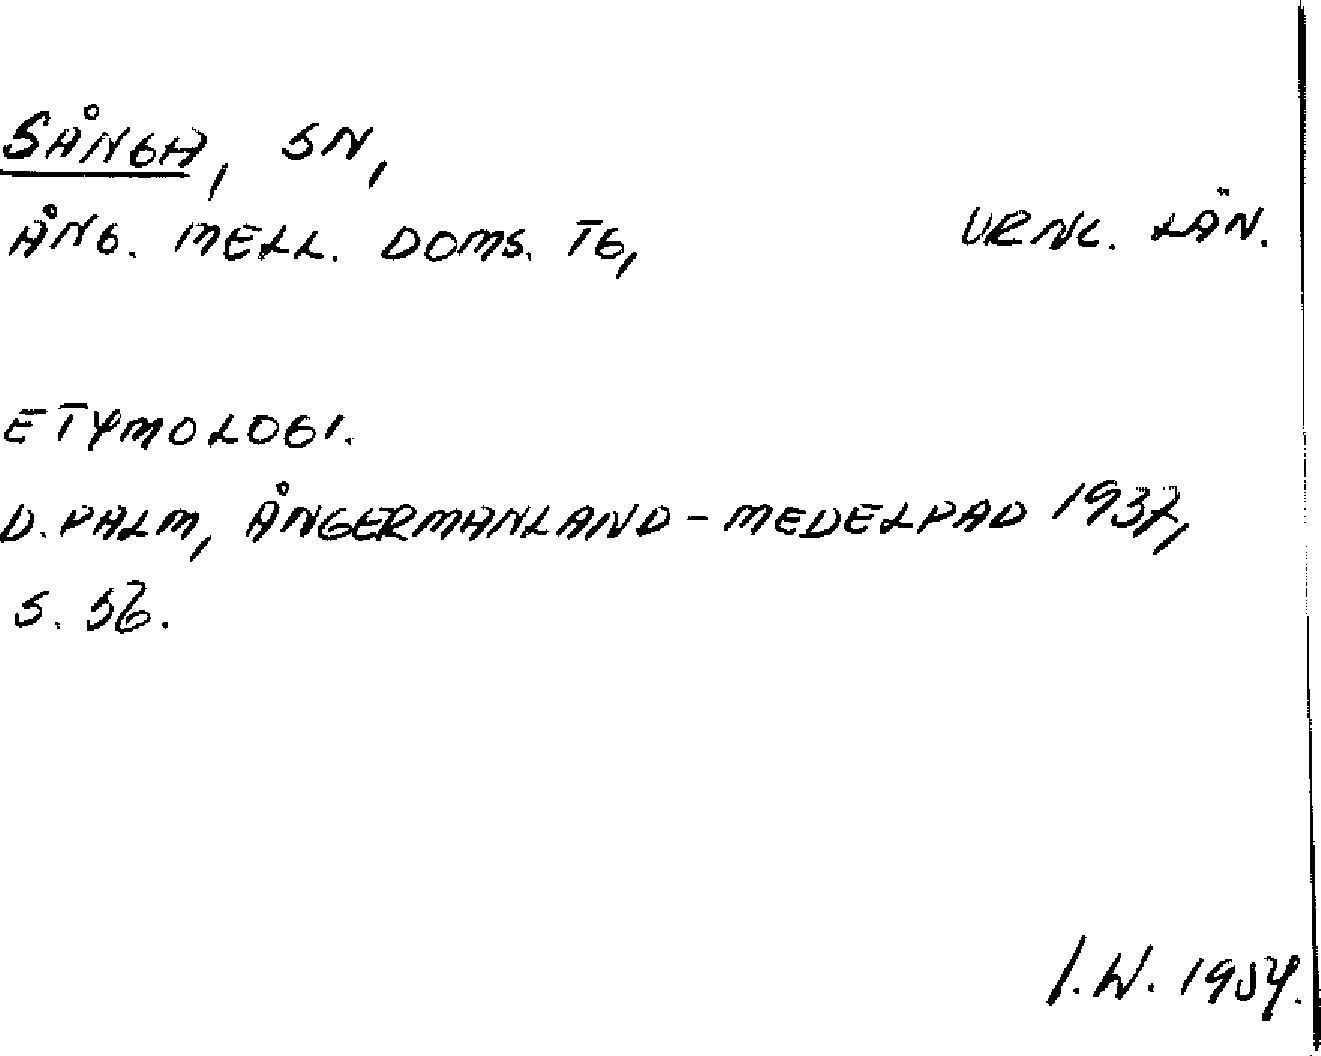 SÅNGA, SN,
ÅNG. MELL. DOMS. TG, VRNL. LÄN.
ETYMOLOGI.
D. PALM, ÅNGERMANLAND - MEDELPAD 1937,
S. 56.
I. W. 1954.